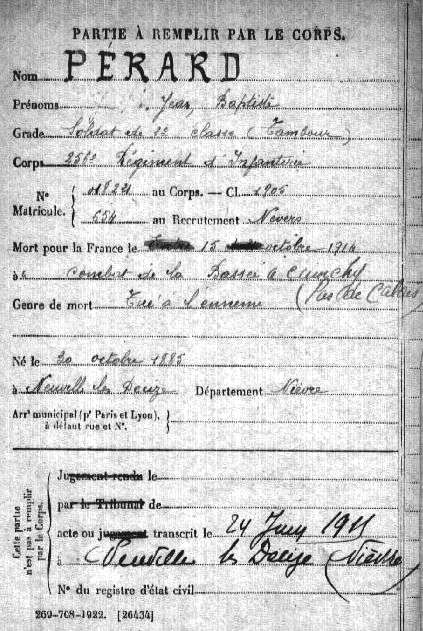 PARTIE À REMPLIR PAR LE CORPS.
Nom PÉRARD
Prénoms Jean, Baptiste
Grade Soldat de 2e classe (Tambour)
Corps 256e Régiment d'Infanterie
N° Matricule. { 018221 au Corps. — Cl. 1905
654 au Recrutement Nevers
Mort pour la France le 15 octobre 1914
à combat de La Bassée à Cuinchy
(Pas de Calais)
Genre de mort Tué à l'ennemi
Né le 20 octobre 1885
à Neuville les Decize Département Nièvre
Arr^t municipal (p^r Paris et Lyon),
à défaut rue et N°.
Cette partie n'est pas à remplir par le Corps.
Jugement rendu le
par le Tribunal de
acte ou jugement transcrit le 24 Juin
à Neuville les Decize (Nièvre)
N° du registre d'état civil
269-708-1922. [26434]